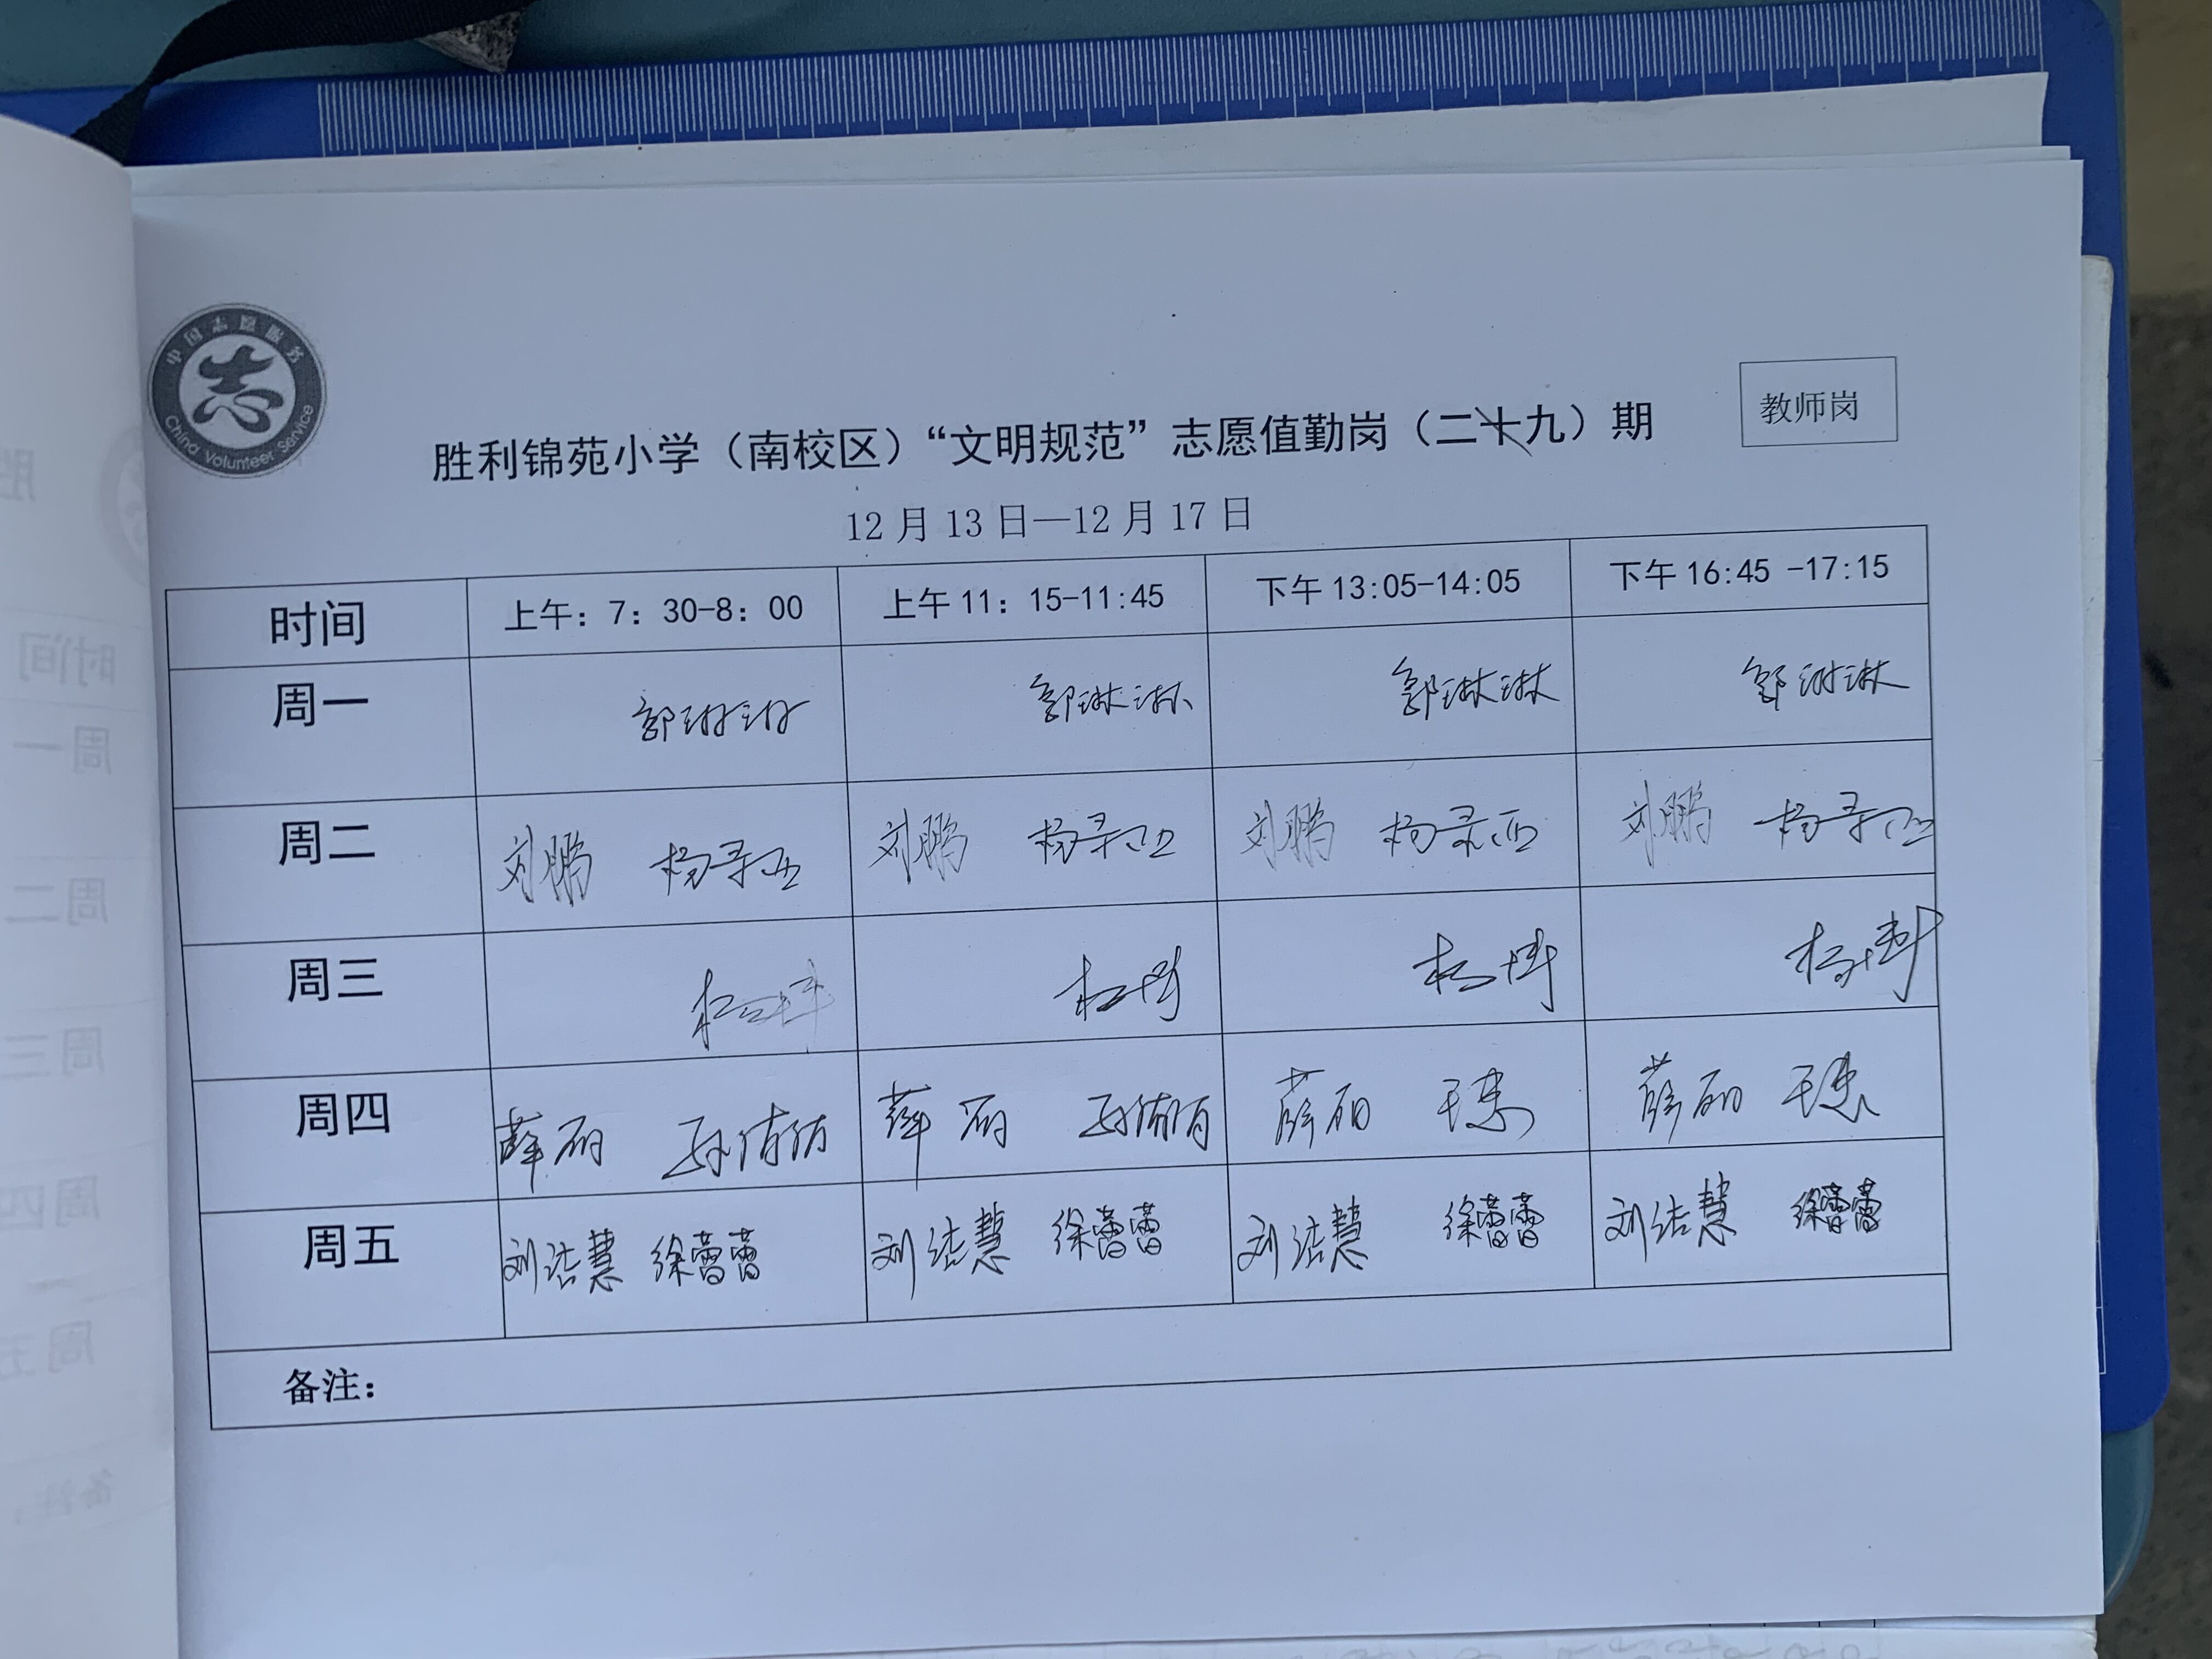 中国志愿服务
志
China Volunteer Service
教师岗
胜利锦苑小学（南校区）“文明规范”志愿值勤岗（二十九）期
12月13日—12月17日
时间 上午：7：30-8：00 上午11：15-11:45 下午13:05-14:05 下午16:45 -17:15
周一 郭琳琳 郭琳琳 郭琳琳 郭琳琳
周二 刘鹏 杨 刘鹏 杨 刘鹏 杨 刘鹏 杨
周三
周四 薛 孙倩倩 薛 孙倩倩 薛 薛
周五 刘洁慧 徐蕾蕾 刘洁慧 徐蕾蕾 刘洁慧 徐蕾蕾 刘洁慧 徐蕾蕾
备注：